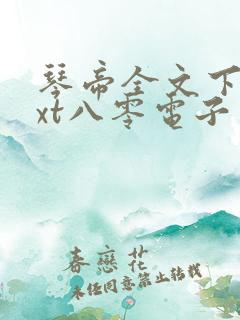 琴帝全文下
xt八零电子
春恋花
未经同意禁止转载